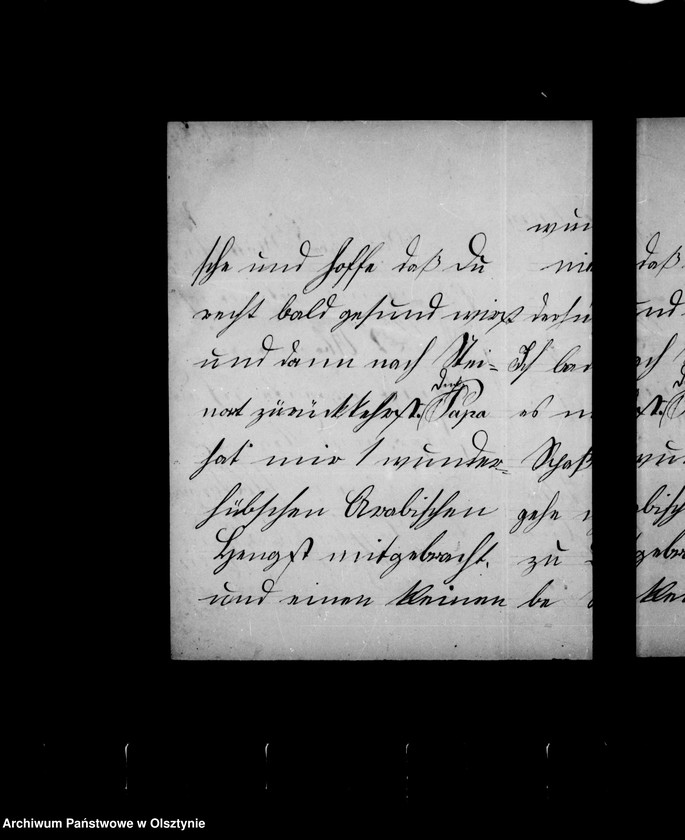 sche und hoffe daß Du
recht bald gesund wirst
und dann nach Stei-
nort zurückkehrst. Dein Papa
hat mir 1 wunder-
hübschen Arabischen
Hengst mitgebracht.
und einen kleinen
wun
nie
Ich
es
Spaß
gehe
zu
be
daß
und
Archiwum Państwowe w Olsztynie